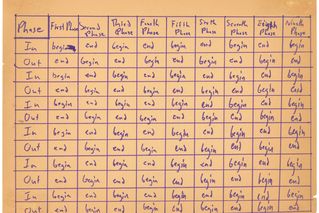 Phase First Phase Second Phase Third Phase Fourth Phase Fifth Phase Sixth Phase Seventh Phase Eighth Phase Phase
In begin end begin end begin end begin end begin
Out end begin end begin end begin end begin end
In begin end begin end begin end begin end begin
Out end begin end begin end begin end begin end
In begin end begin end begin end begin end begin
Out end begin end begin end begin end begin end
In begin end begin end begin end begin end begin
Out end begin end begin end begin end begin end
In begin end begin end begin end begin end begin
Out end begin end begin end begin end begin end
In begin end begin end begin end begin end begin
Out end begin end begin end begin end begin end